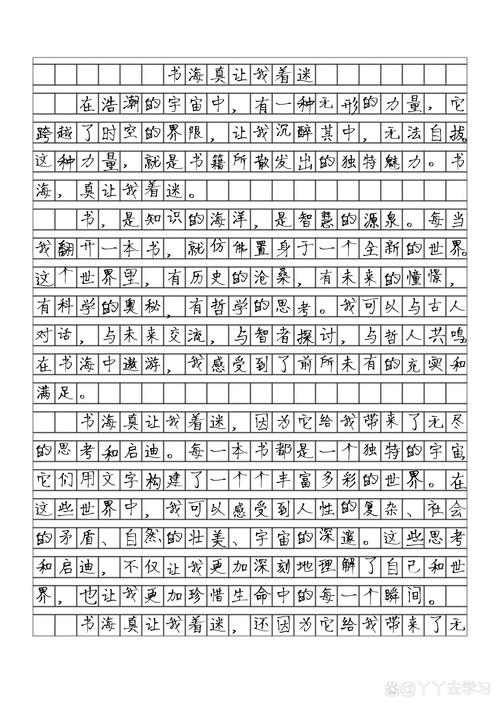 书海真让我着迷
在浩瀚的宇宙中，有一种无形的力量，它
跨越了时空的界限，让我沉醉其中，无法自拔。
这种力量，就是书籍所散发出的独特魅力。书
海，真让我着迷。
书，是知识的海洋，是智慧的源泉。每当
我翻开一本书，就仿佛置身于一个全新的世界。
这个世界里，有历史的沧桑，有未来的憧憬，
有科学的奥秘，有哲学的思考。我可以与古人
对话，与未来交流，与智者探讨，与哲人共鸣。
在书海中遨游，我感受到了前所未有的充实和
满足。
书海真让我着迷，因为它给我带来了无尽
的思考和启迪。每一本书都是一个独特的宇宙，
它们用文字构建了一个个丰富多彩的世界。在
这些世界中，我可以感受到人性的复杂、社会
的矛盾、自然的壮美、宇宙的深邃。这些思考
和启迪，不仅让我更加深刻地理解了自己和世
界，也让我更加珍惜生命中的每一个瞬间。
书海真让我着迷，还因为它给我带来了无
@丫丫去学习